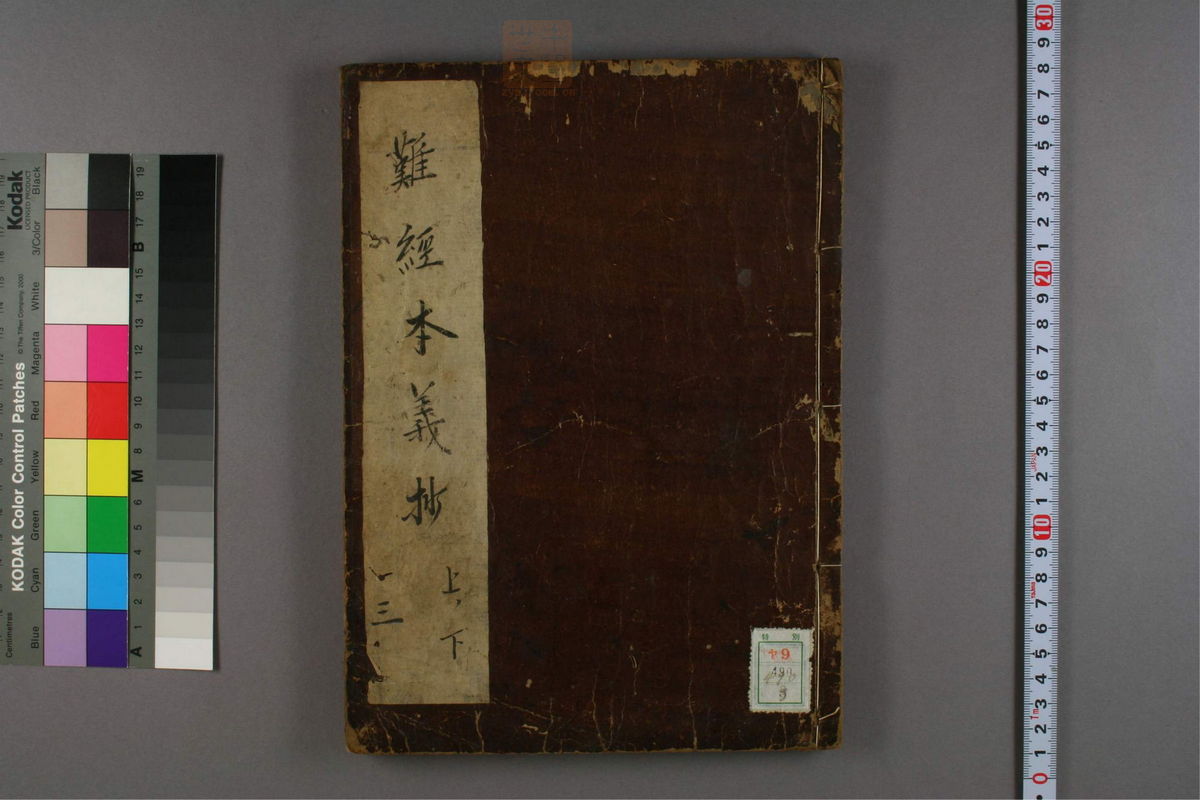 難經本義抄
上、下
三
特別
ヤ9
490
5
Kodak
LICENSED PRODUCT
KODAK Color Control Patches
© The Tiffen Company, 2000
Centimetres
Blue
Cyan
Green
Yellow
Red
Magenta
White
3/Color
Black
A 1 2 3 4 5 6 M 8 9 10 11 12 13 14 15 B 17 18 19
30
9
8
7
6
5
4
3
2
1
20
9
8
7
6
5
4
3
2
1
10
9
8
7
6
5
4
3
1m
2
1
0